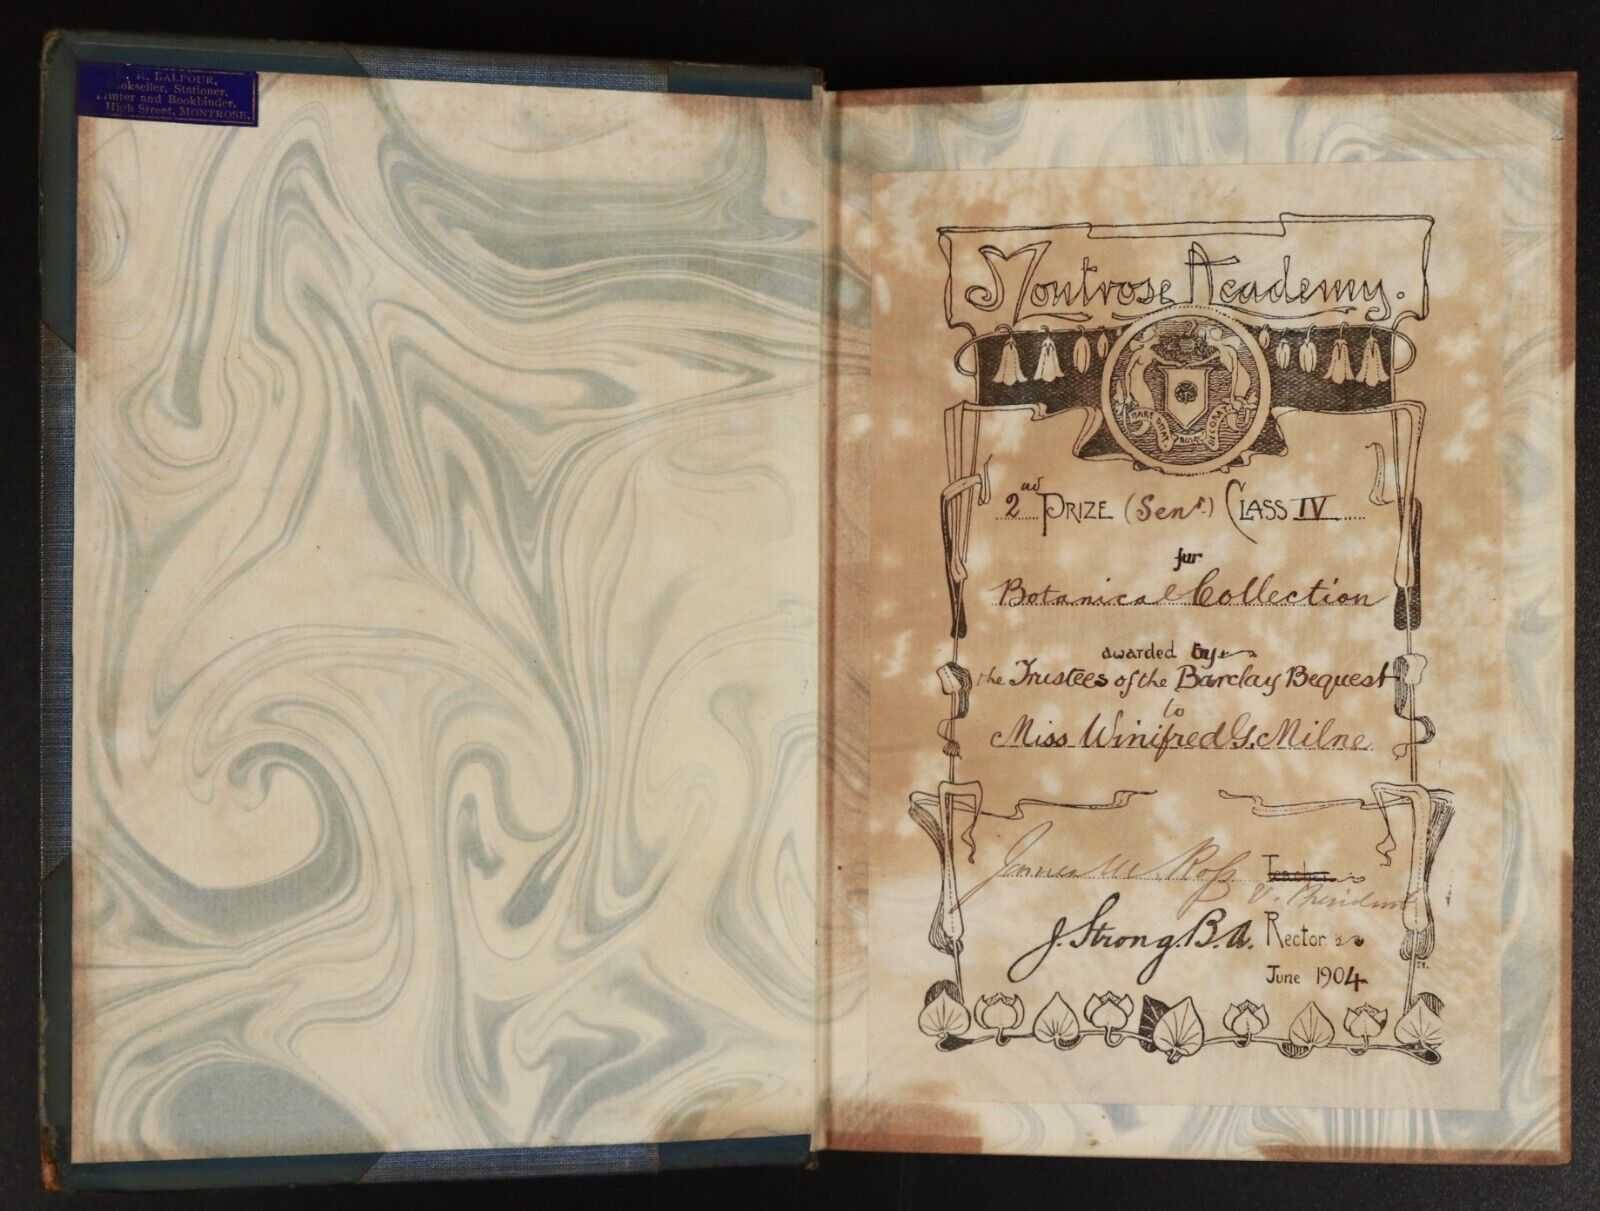 R. BALFOUR,
Bookseller, Stationer,
Printer and Bookbinder,
High Street, MONTROSE.
Montrose Academy.
MARE DITAT ROSA DECORAT
2nd PRIZE (Senr.) CLASS IV
for
Botanical Collection
awarded by
the Trustees of the Barclay Bequest
to
Miss Winifred G. Milne
James W. Ross Teacher
V. President
J. Strong. B.A. Rector
June 1904